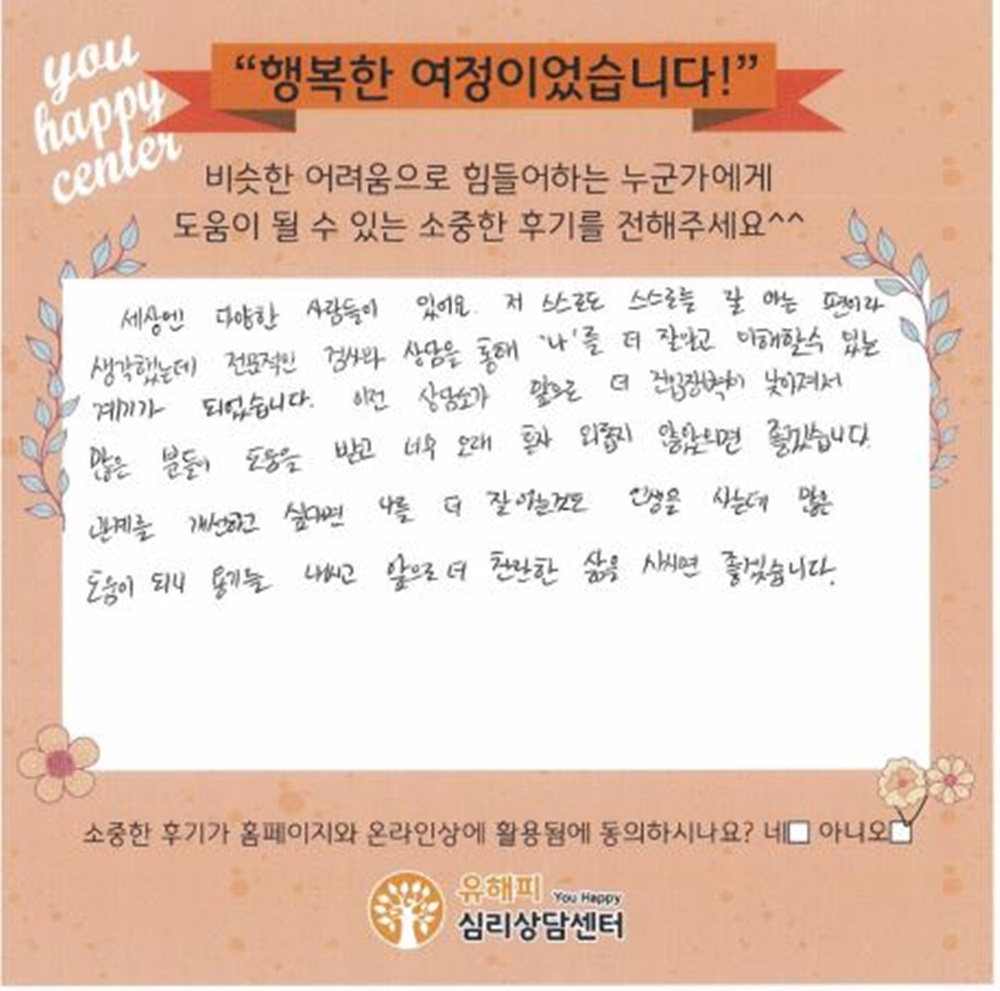 you
happy
center
“행복한 여정이었습니다!”
비슷한 어려움으로 힘들어하는 누군가에게
도움이 될 수 있는 소중한 후기를 전해주세요^^
세상엔 다양한 사람들이 있어요. 저 스스로도 스스로를 잘 아는 편이라
생각했는데 전문적인 검사와 상담을 통해 '나'를 더 잘알고 이해할수 있는
계기가 되었습니다. 이런 상담소가 앞으로 더 진입장벽이 낮아져서
많은 분들이 도움을 받고 너무 오래 혼자 외롭지 않았으면 좋겠습니다.
관계를 개선하고 싶다면 나를 더 잘 아는것도 인생을 사는데 많은
도움이 되니 용기를 내시고 앞으로 더 찬란한 삶을 사시면 좋겠습니다.
소중한 후기가 홈페이지와 온라인상에 활용됨에 동의하시나요? 네□ 아니오□
유해피 You Happy
심리상담센터